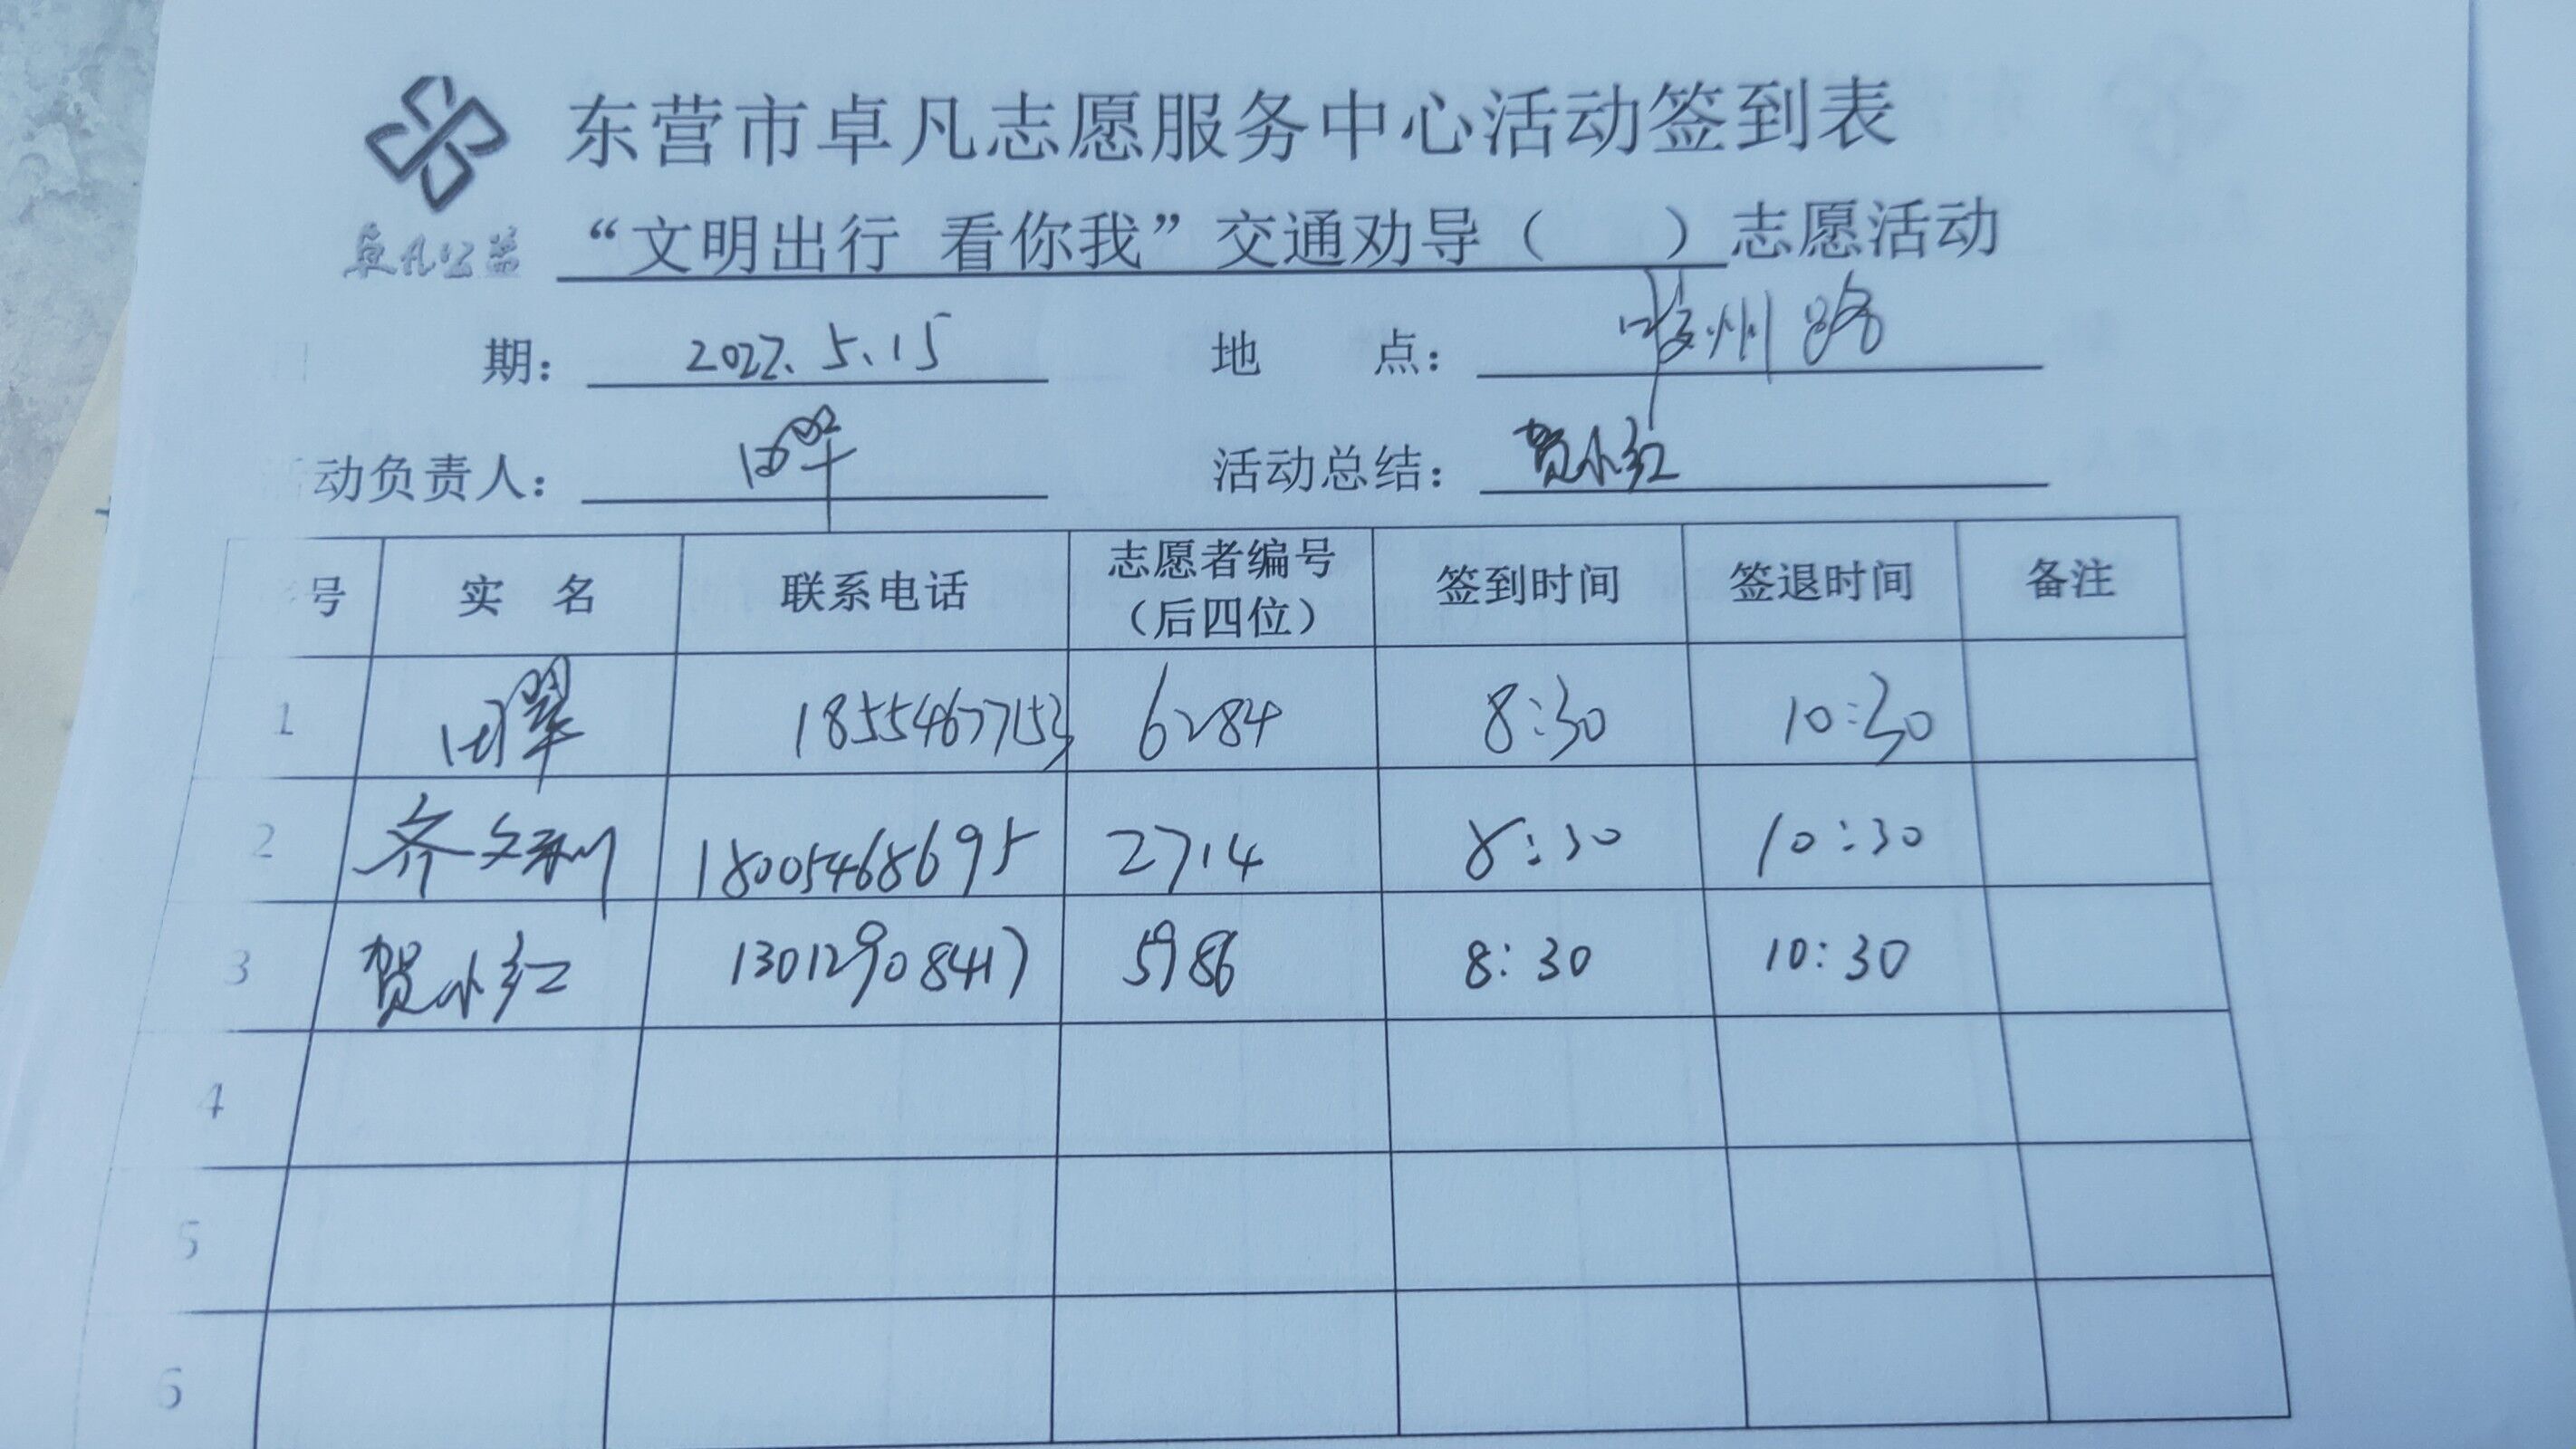 东营市卓凡志愿服务中心活动签到表
卓凡公益
“文明出行 看你我”交通劝导（ ）志愿活动
期： 2022.5.15 地 点： 胶州路
动负责人： 田翠 活动总结： 贺小红
号 实 名 联系电话 志愿者编号（后四位） 签到时间 签退时间 备注
1 田翠 18554677153 6284 8:30 10:30
2 齐文利 18005468695 2714 8:30 10:30
3 贺小红 13012908417 5986 8:30 10:30
4
5
6